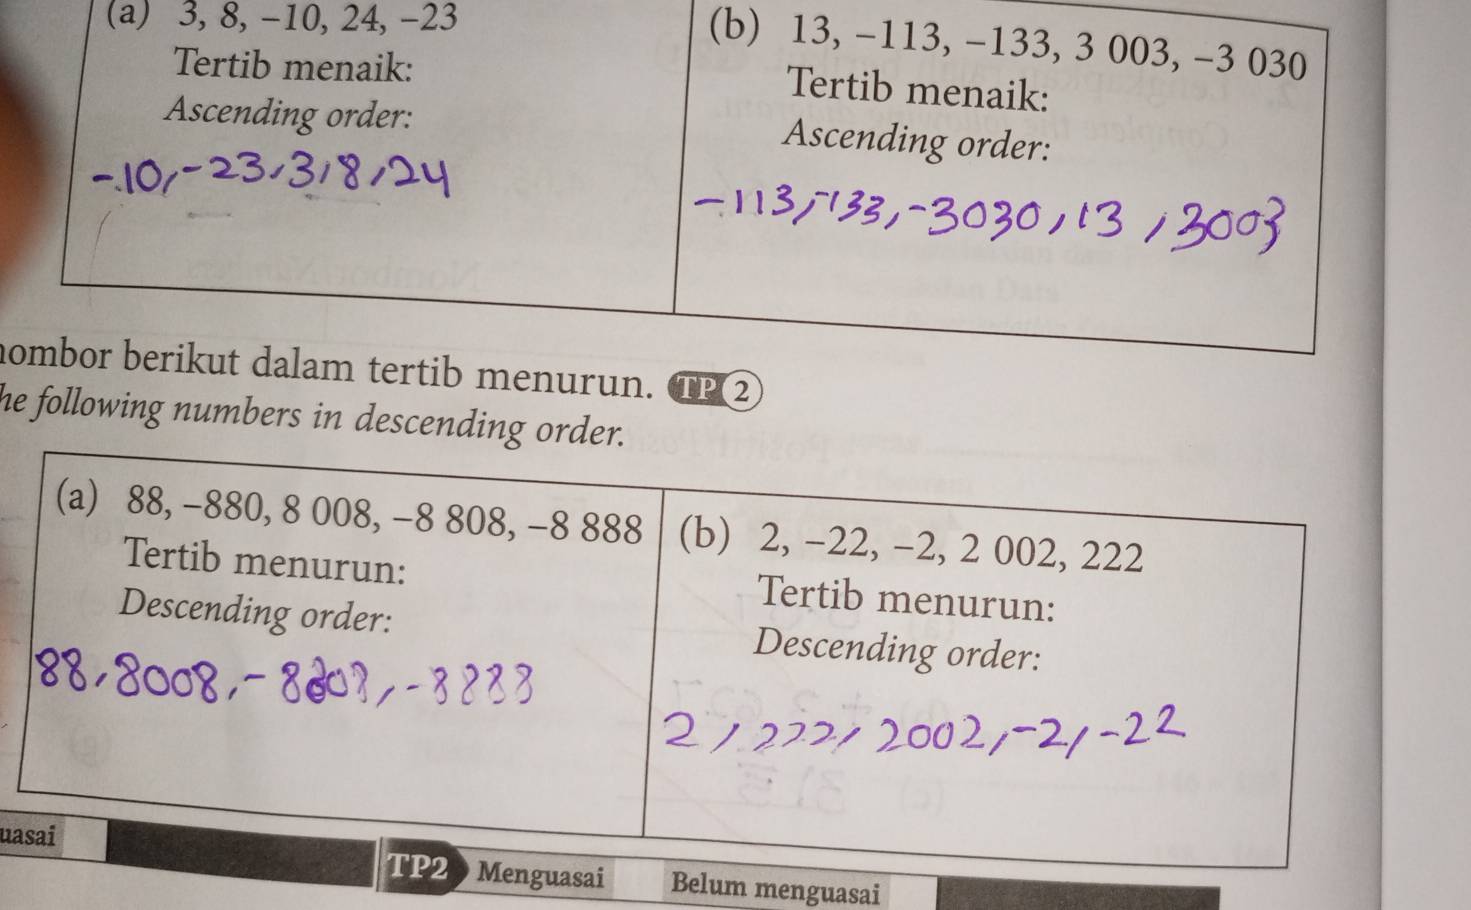 (a) 3, 8, −10, 24, −23
Tertib menaik:
Ascending order:
-10,-23,3,8,24
(b) 13, −113, −133, 3 003, −3 030
Tertib menaik:
Ascending order:
-113,-133,-3030,13,3003
nombor berikut dalam tertib menurun. TP 2
he following numbers in descending order.
(a) 88, −880, 8 008, −8 808, −8 888
Tertib menurun:
Descending order:
88,8008,-8808,-8888
(b) 2, −22, −2, 2 002, 222
Tertib menurun:
Descending order:
2,222,2002,-2,-22
uasai
TP2 Menguasai Belum menguasai